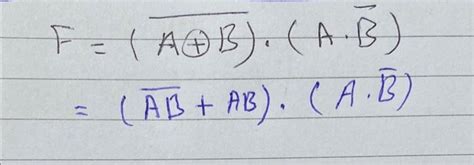 F = (\overline{A⊕B}) · (A · \overline{B})
= (\overline{AB} + AB) · (A · \overline{B})